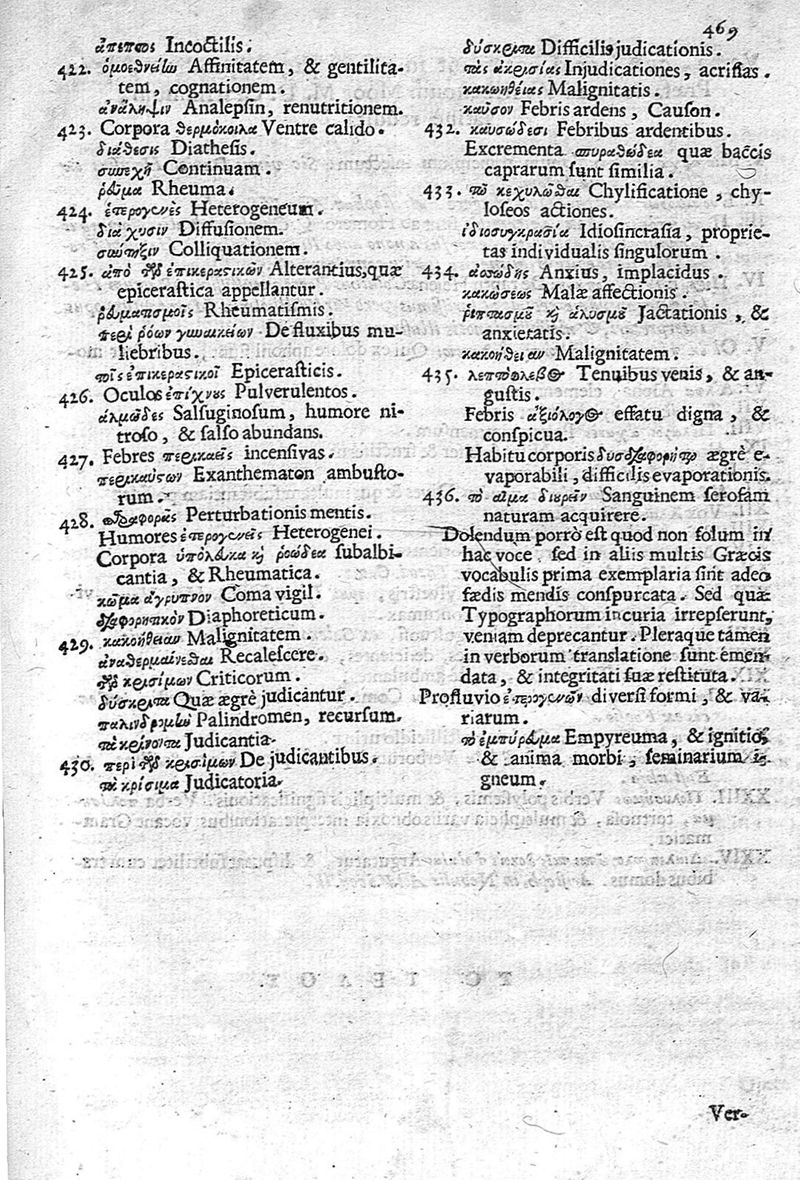 469
ἄπεπτος Incoctilis.
422. ὁμοεθνείαν Affinitatem, & gentilita-
tem, cognationem.
ἀνάληψιν Analepsin, renutritionem.
423. Corpora θερμόκοιλα Ventre calido.
διάθεσις Diathesis.
συνεχῆ Continuam.
ῥεῦμα Rheuma.
424. ἑτερογενὲς Heterogeneum.
διάχυσιν Diffusionem.
σύντηξιν Colliquationem.
425. ἀπὸ τῶν ἐπικεραστικῶν Alterantius, quæ
epicerastica appellantur.
ῥευματισμοῖς Rheumatismis.
περὶ ῥόων γυναικείων De fluxibus mu-
liebribus.
τοῖς ἐπικεραστικοῖ Epicerasticis.
426. Oculos ἐπίχνους Pulverulentos.
ἁλμῶδες Salsuginosum, humore ni-
troso, & salso abundans.
427. Febres περικαεῖς incensivas.
περικαύτων Exanthematon ambusto-
rum.
428. παραφορᾶς Perturbationis mentis.
Humores ἑτερογενεῖς Heterogenei.
Corpora ὑπόλευκα καὶ ῥοώδεα subalbi-
cantia, & Rheumatica.
κῶμα ἄγρυπνον Coma vigil.
διαφορητικὸν Diaphoreticum.
429. κακοήθειαν Malignitatem.
ἀναθερμαίνεσθαι Recalescere.
τῶν κρισίμων Criticorum.
δύσκριτα Quæ ægrè judicantur.
παλινδρομίαν Palindromen, recursum.
τὰ κρίνοντα Judicantia.
430. περὶ τῶν κρισίμων De judicantibus.
τὰ κρίσιμα Judicatoria.
δύσκριτα Difficilis judicationis.
τὰς ἀκρισίας Injudicationes, acrisias.
κακοηθείας Malignitatis.
καῦσον Febris ardens, Causon.
432. καυσώδεσι Febribus ardentibus.
Excrementa σπυραθώδεα quæ baccis
caprarum sunt similia.
433. τὸ κεχυλῶσθαι Chylificatione, chy-
loseos actiones.
ἰδιοσυγκρασία Idiosincrasia, proprie-
tas individualis singulorum.
434. ἀσώδης Anxius, implacidus.
κακώσεως Malæ affectionis.
ῥιπτασμοῦ καὶ ἀλυσμοῦ Jactationis, &
anxietatis.
κακοήθειαν Malignitatem.
435. λεπτόφλεβος Tenuibus venis, & an-
gustis.
Febris ἀξιόλογος effatu digna, &
conspicua.
Habitu corporis δυσδιαφορήτῳ ægrè e-
vaporabili, difficilis evaporationis.
436. τὸ αἷμα διορεῖν Sanguinem serosam
naturam acquirere.
Dolendum porrò est quod non solum in
hac voce, sed in aliis multis Græcis
vocabulis prima exemplaria sint adeo
fædis mendis conspurcata. Sed quæ
Typographorum incuria irrepserunt,
veniam deprecantur. Pleraque tamen
in verborum translatione sunt emen-
data, & integritati suæ restituta.
Profluvio ἑτερογενῶν diversiformi, & va-
riarum.
τὸ ἐμπύρευμα Empyreuma, & ignitio,
& anima morbi, seminarium i-
gneum.
Ver-